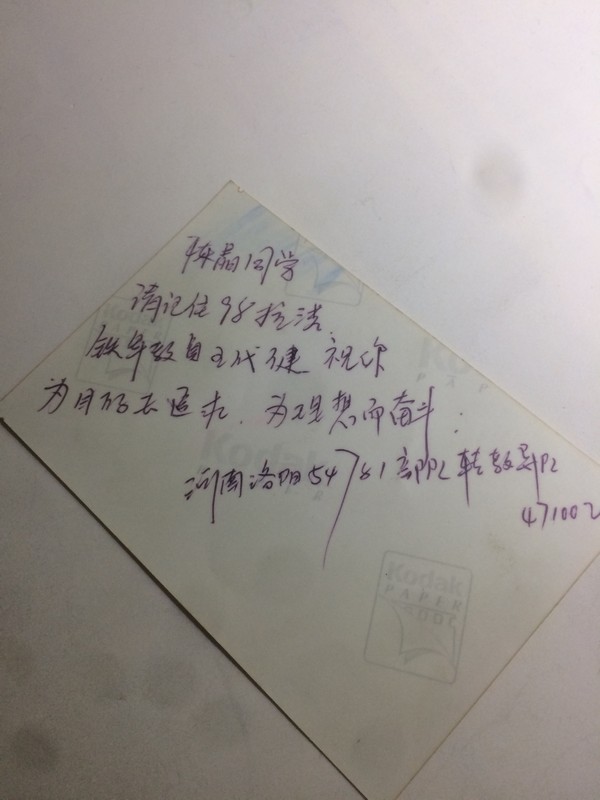 陈晶同学
请记住98抢洪
铁军教员王代建 祝你
为目的去追求,为理想而奋斗.
河南洛阳54781部队转教导队
471002
Kodak
PAPER